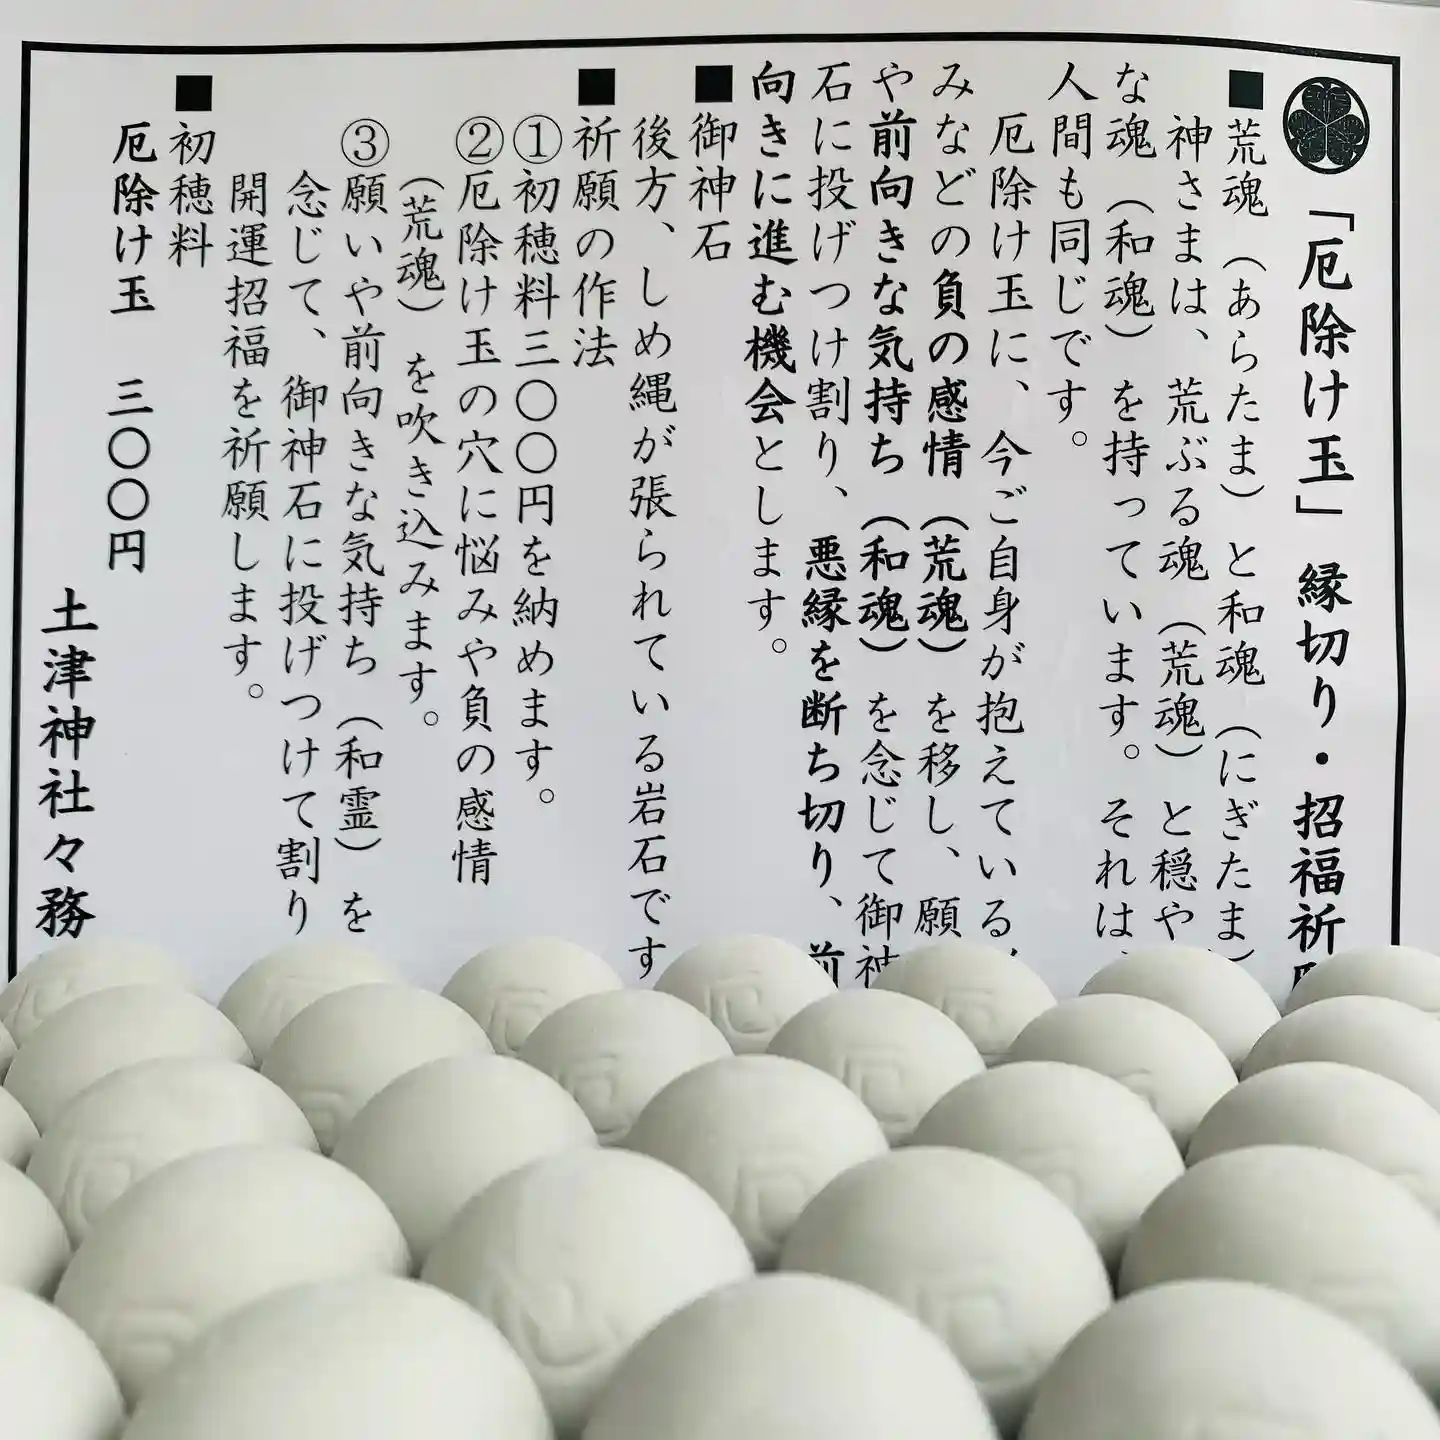 「厄除け玉」縁切り・招福祈
■荒魂（あらたま）と和魂（にぎたま）
神さまは、荒ぶる魂（荒魂）と穏や
な魂（和魂）を持っています。それは、
人間も同じです。
厄除け玉に、今ご自身が抱えている
みなどの負の感情（荒魂）を移し、願
や前向きな気持ち（和魂）を念じて御神
石に投げつけ割り、悪縁を断ち切り、前
向きに進む機会とします。
■御神石
後方、しめ縄が張られている岩石です
■祈願の作法
①初穂料三〇〇円を納めます。
②厄除け玉の穴に悩みや負の感情
（荒魂）を吹き込みます。
③願いや前向きな気持ち（和霊）を
念じて、御神石に投げつけて割り
開運招福を祈願します。
■初穂料
厄除け玉　三〇〇円
土津神社々務
厄
厄
厄
厄
厄
厄
厄
厄
厄